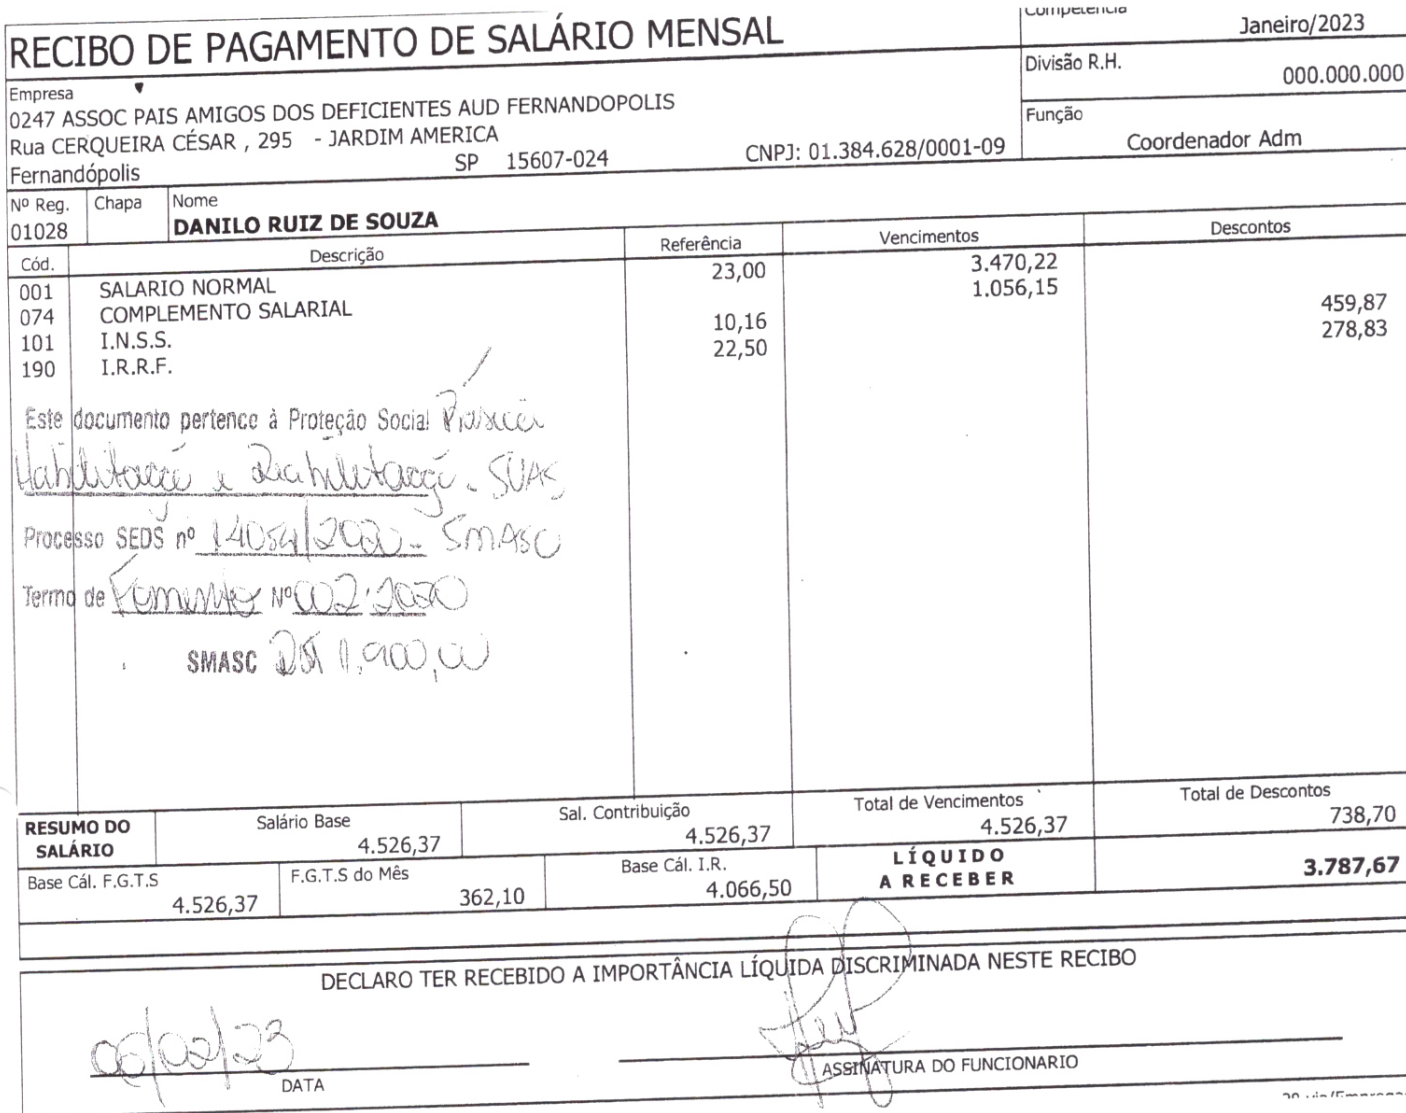 RECIBO DE PAGAMENTO DE SALÁRIO MENSAL
Competência
Janeiro/2023
Divisão R.H.
000.000.000
Função
Coordenador Adm
Empresa
0247 ASSOC PAIS AMIGOS DOS DEFICIENTES AUD FERNANDOPOLIS
Rua CERQUEIRA CÉSAR , 295 - JARDIM AMERICA
Fernandópolis SP 15607-024 CNPJ: 01.384.628/0001-09
Nº Reg. Chapa Nome
01028 DANILO RUIZ DE SOUZA
Cód. Descrição Referência Vencimentos Descontos
001 SALARIO NORMAL 23,00 3.470,22
074 COMPLEMENTO SALARIAL 1.056,15
101 I.N.S.S. 10,16 459,87
190 I.R.R.F. 22,50 278,83
Este documento pertence à Proteção Social
Habilitação e Reabilitação - SUAS
Processo SEDS nº 14054/2020 - SMASC
Termo de Fomento Nº 002.2020
SMASC R$ 1.900,00
RESUMO DO SALÁRIO
Salário Base Sal. Contribuição Total de Vencimentos Total de Descontos
4.526,37 4.526,37 4.526,37 738,70
Base Cál. F.G.T.S F.G.T.S do Mês Base Cál. I.R. LÍQUIDO A RECEBER
4.526,37 362,10 4.066,50 3.787,67
DECLARO TER RECEBIDO A IMPORTÂNCIA LÍQUIDA DISCRIMINADA NESTE RECIBO
06/02/23
DATA ASSINATURA DO FUNCIONARIO